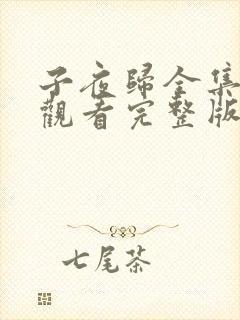 子夜歸全集
觀看完整版
七尾茶